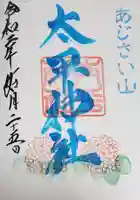 あじさい山
太平神社
令和二年
六月二十五日